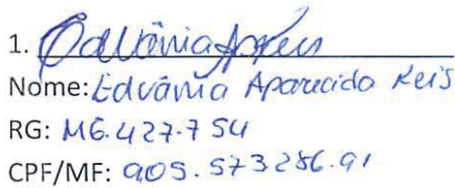 1. Edvânia Ap Reis
Nome: Edvânia Aparecida Reis
RG: M6.427.754
CPF/MF: 905.573286.91